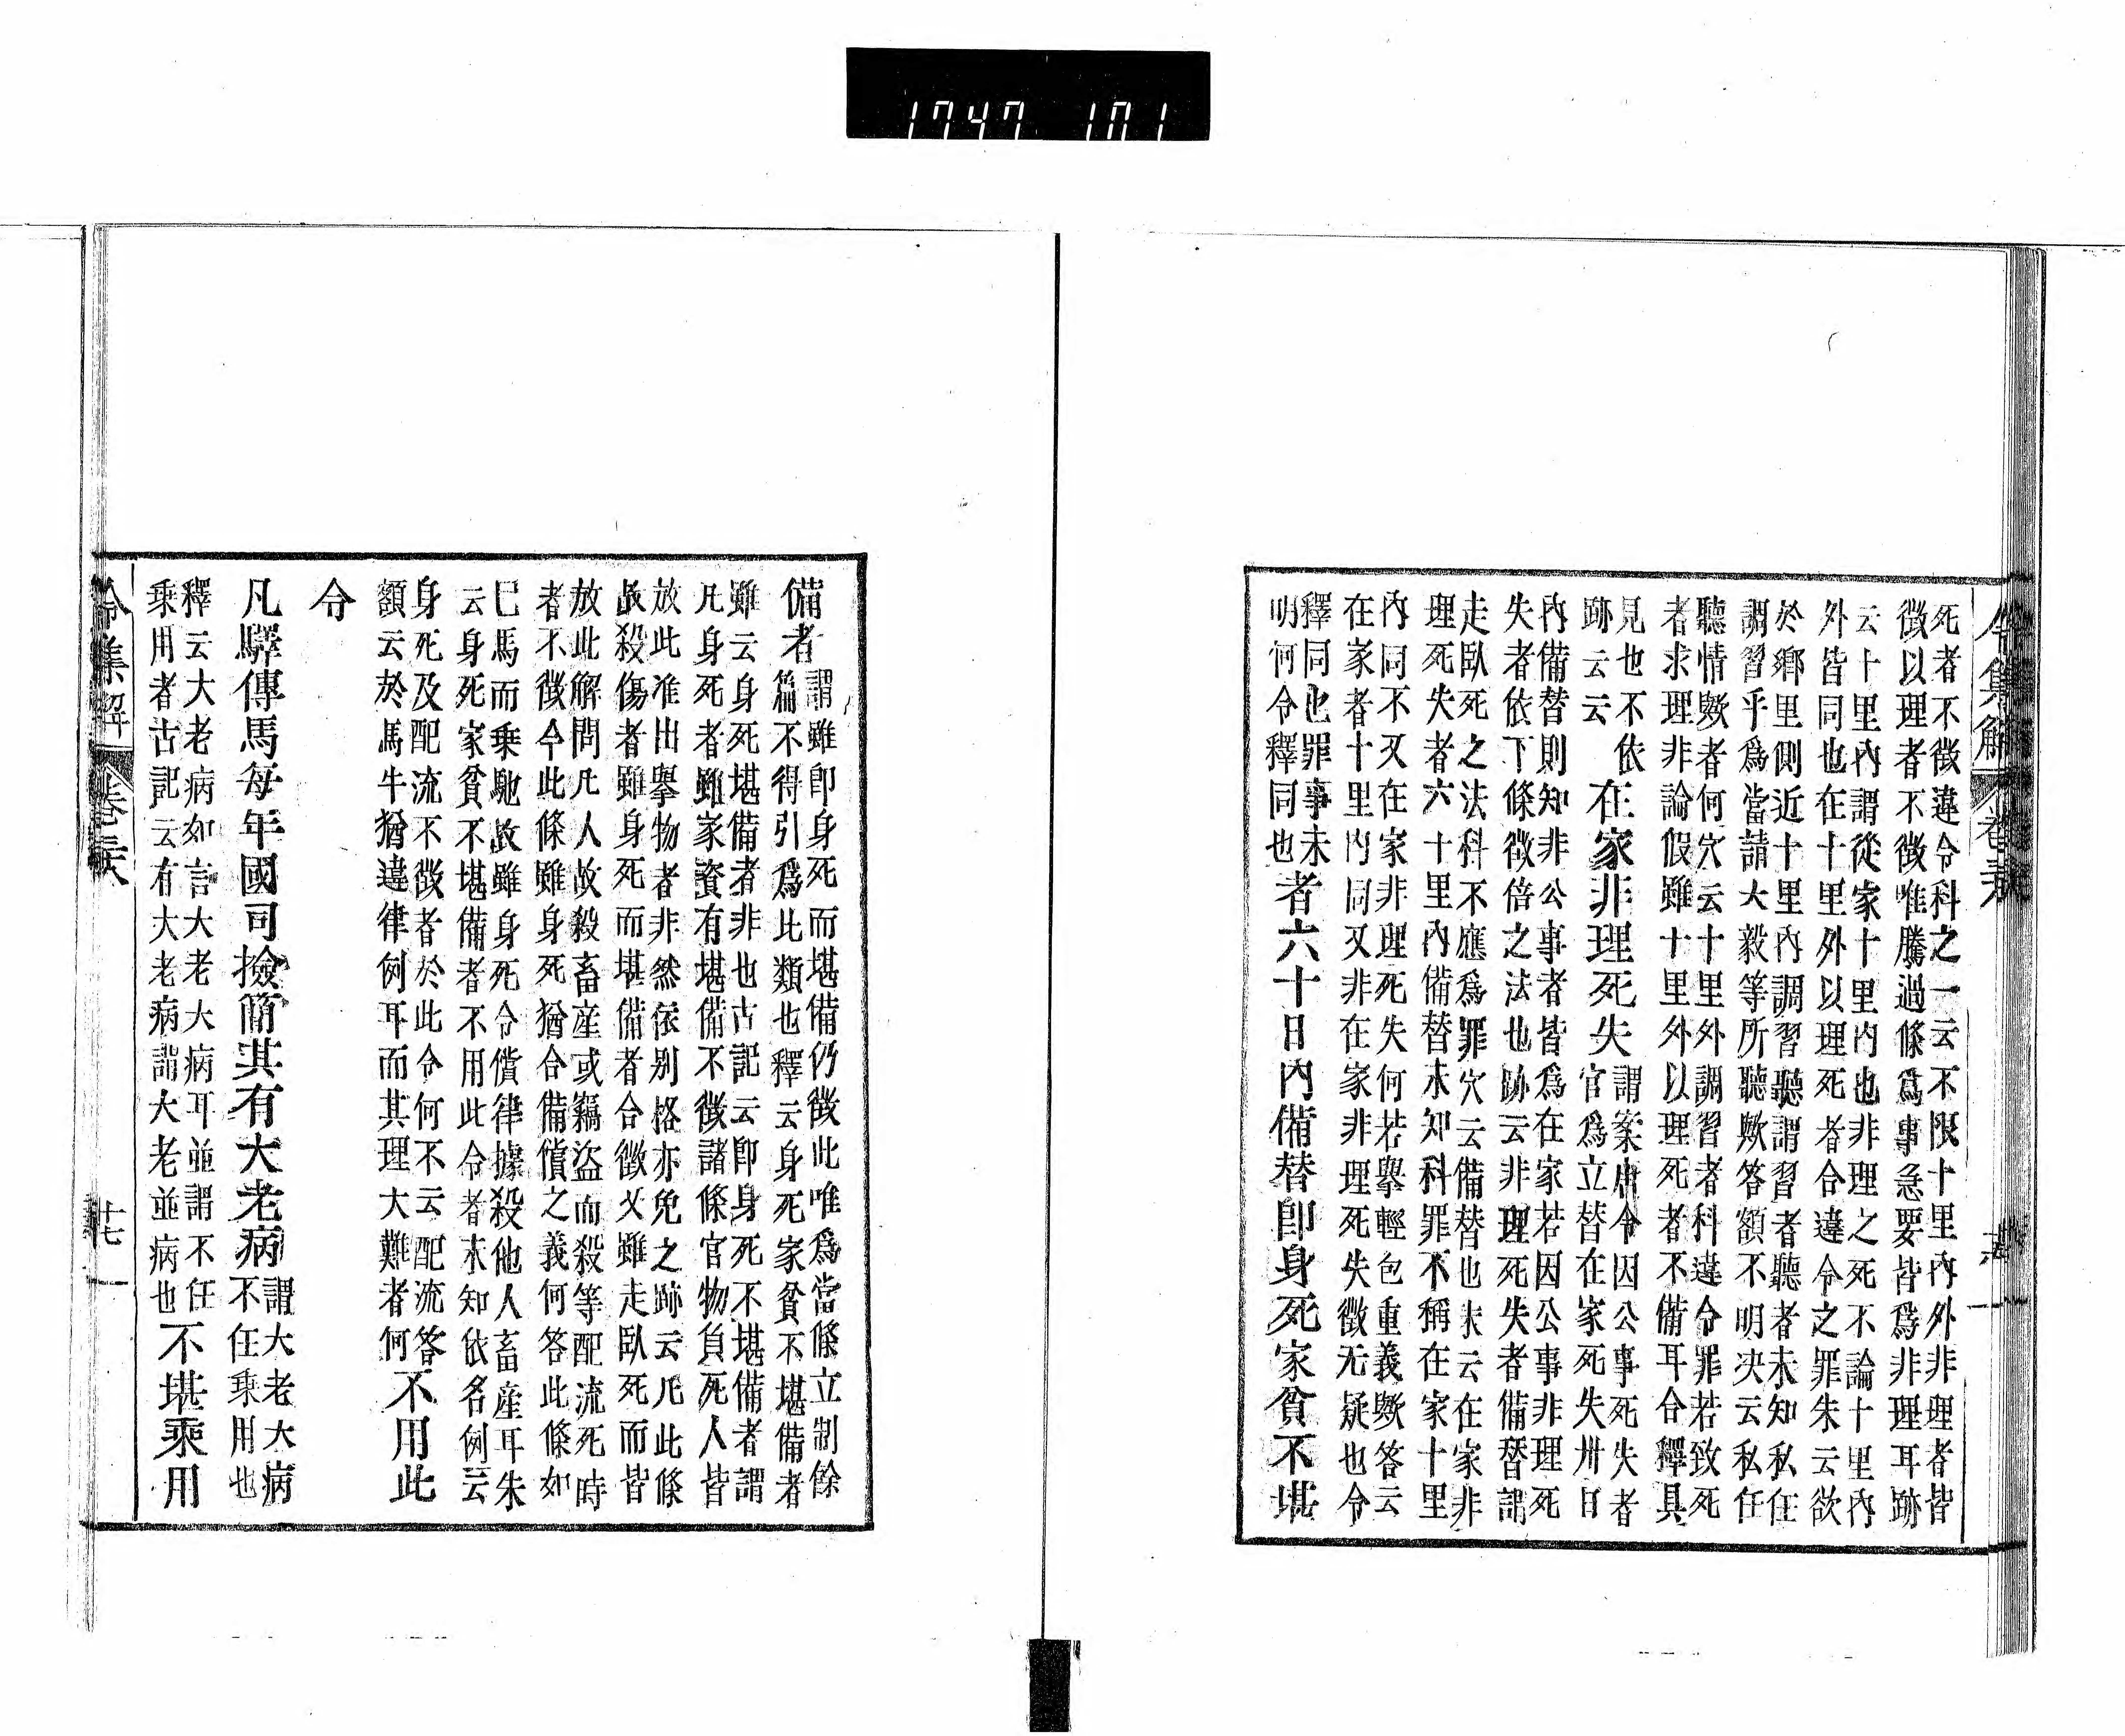 1747 101
令集解 卷
死者不徵違令科之一云不限十里內外非理者皆
徵以理者不徵唯騰過條爲事急要皆爲非理耳跡
云十里內謂從家十里內也非理之死不論十里內
外皆同也在十里外以理死者合違令之罪朱云欲
於鄕里側近十里內調習聽謂習者聽者未知私任
調習乎爲當請大毅等所聽歟答額不明决云私任
聽情歟者何穴云十里外調習者科違令罪若致死
者求理非論假雖十里外以理死者不備耳合釋具
見也不依
跡云云
在家非理死失
謂案唐令因公事死失者
官爲立替在家死失卅日
內備替則知非公事者皆爲在家若因公事非理死
失者依下條徵倍之法也跡云非理死失者備替謂
走臥死之法科不應爲罪穴云備替也朱云在家非
理死失者六十里內備替未知科罪不稱在家十里
內同不又在家非理死失何若擧輕包重義歟答云
在家者十里內同又非在家非理死失徵无疑也令
釋同也罪事未
明何令釋同也
者六十日內備替卽身死家貧不堪
備者
謂雖卽身死而堪備仍徵此唯爲當條立制餘
篇不得引爲此類也釋云身死家貧不堪備者
雖云身死堪備者非也古記云卽身死不堪備者謂
凡身死者雖家資有堪備不徵諸條官物負死人皆
放此准出擧物者非然依別格亦免之跡云凡此條
故殺傷者雖身死而堪備者合徵父雖走臥死而皆
放此解問凡人故殺畜産或竊盜而殺等配流死時
者不徵今此條雖身死猶合備償之義何答此條如
巳馬而乘馳故雖身死令償律據殺他人畜産耳朱
云身死家貧不堪備者不用此令者未知依名例云
身死及配流不徵者於此令何不云配流答
額云於馬牛猶違律例耳而其理大難者何
不用此
令
凡驛傳馬每年國司撿簡其有大老病
謂大老大病
不任乘用也
釋云大老病如言大老大病耳並謂不任
乘用者古記云有大老病謂大老並病也
不堪乘用
令集解 卷 十七